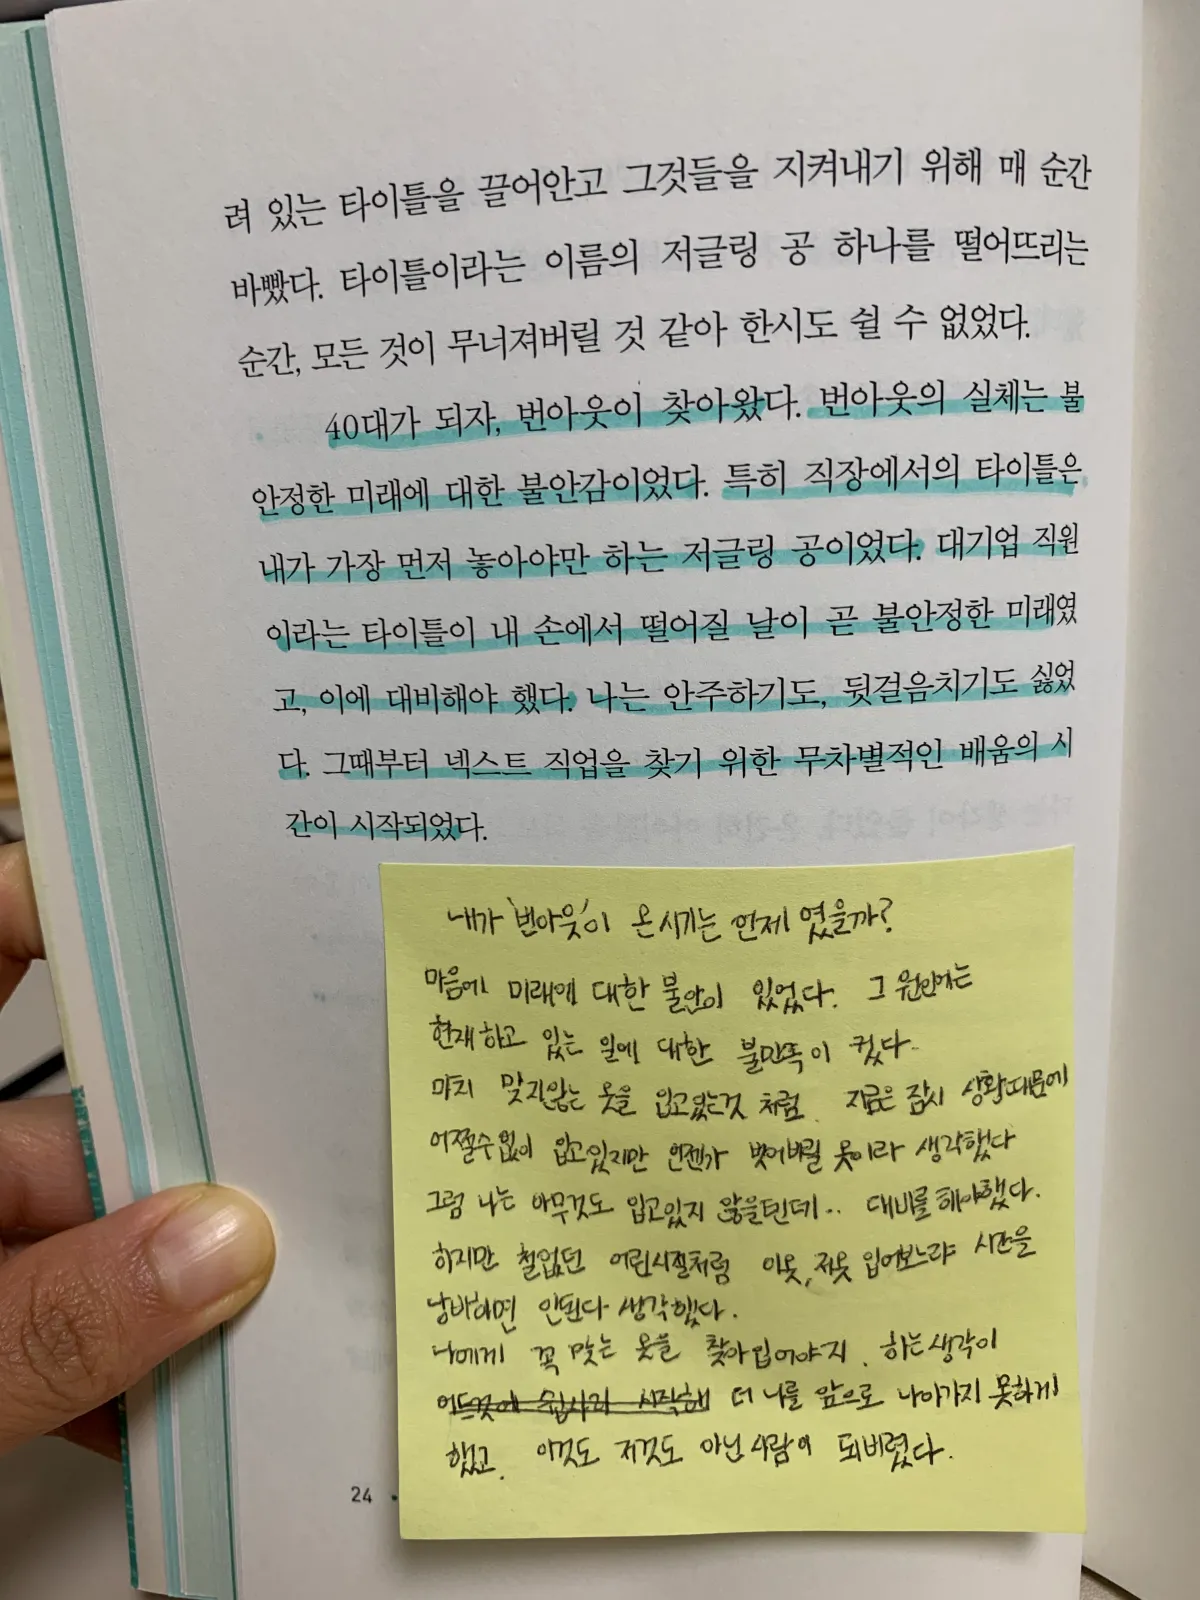 려 있는 타이틀을 끌어안고 그것들을 지켜내기 위해 매 순간
바빴다. 타이틀이라는 이름의 저글링 공 하나를 떨어뜨리는
순간, 모든 것이 무너져버릴 것 같아 한시도 쉴 수 없었다.
40대가 되자, 번아웃이 찾아왔다. 번아웃의 실체는 불
안정한 미래에 대한 불안감이었다. 특히 직장에서의 타이틀은
내가 가장 먼저 놓아야만 하는 저글링 공이었다. 대기업 직원
이라는 타이틀이 내 손에서 떨어질 날이 곧 불안정한 미래였
고, 이에 대비해야 했다. 나는 안주하기도, 뒷걸음치기도 싫었
다. 그때부터 넥스트 직업을 찾기 위한 무차별적인 배움의 시
간이 시작되었다.
내가 '번아웃'이 온 시기는 언제 였을까?
마음에 미래에 대한 불안이 있었다. 그 원인에는
현재 하고 있는 일에 대한 불만족이 컸다.
마치 맞지않는 옷을 입고있는것 처럼. 지금은 잠시 상황때문에
어쩔수없이 입고있지만 언젠가 벗어버릴 옷이라 생각했다
그럼 나는 아무것도 입고있지 않을텐데.. 대비를 해야했다.
하지만 철없던 어린시절처럼 이옷, 저옷 입어보느라 시간을
낭비하면 안된다 생각했다.
나에게 꼭 맞는 옷을 찾아입어야지. 하는생각이
더 나를 앞으로 나아가지 못하게
했고. 이것도 저것도 아닌 사람이 되버렸다.
24